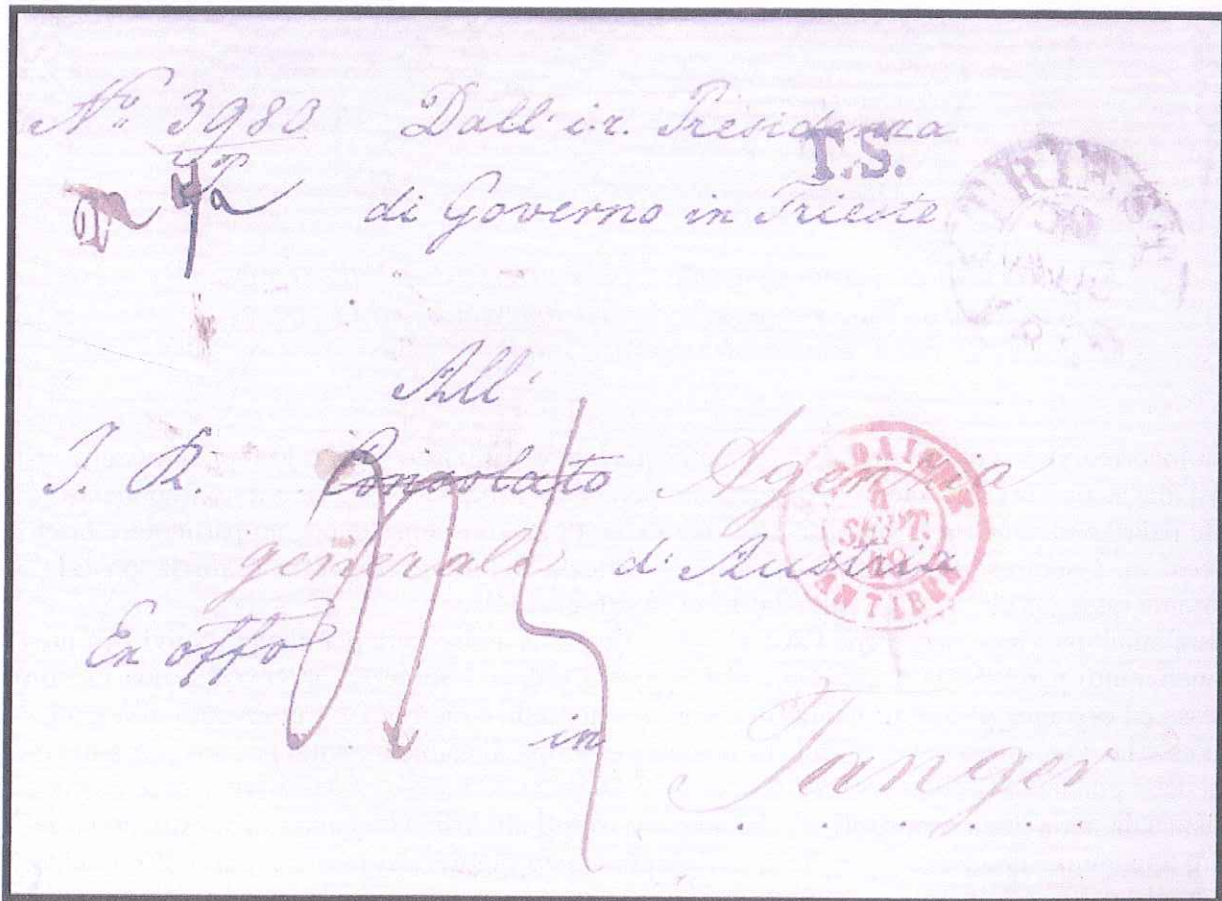 No 3980 Dall' i.r. Presidenza
T.S.
di Governo in Trieste
TRIEST
All'
I. R. Consolato Agenzia
generale d'Austria
SEPT.
ANTIBES
Ex offo
in
Tanger